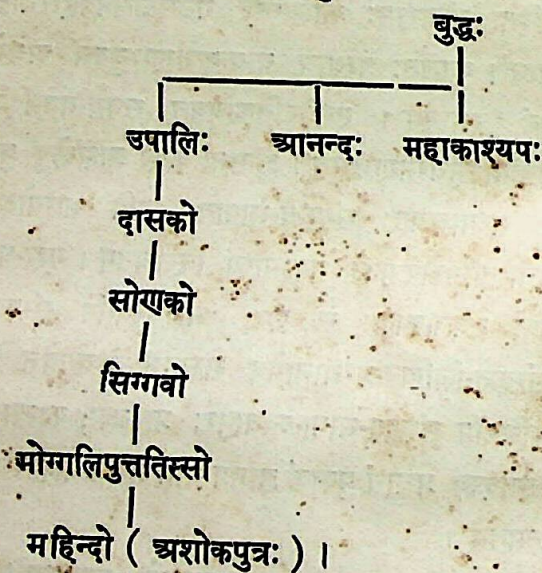 बुद्धः
उपालिः आनन्दः महाकाश्यपः
दासको
सोणको
सिग्गवो
मोग्गलिपुत्ततिस्सो
महिन्दो ( अशोकपुत्रः ) ।